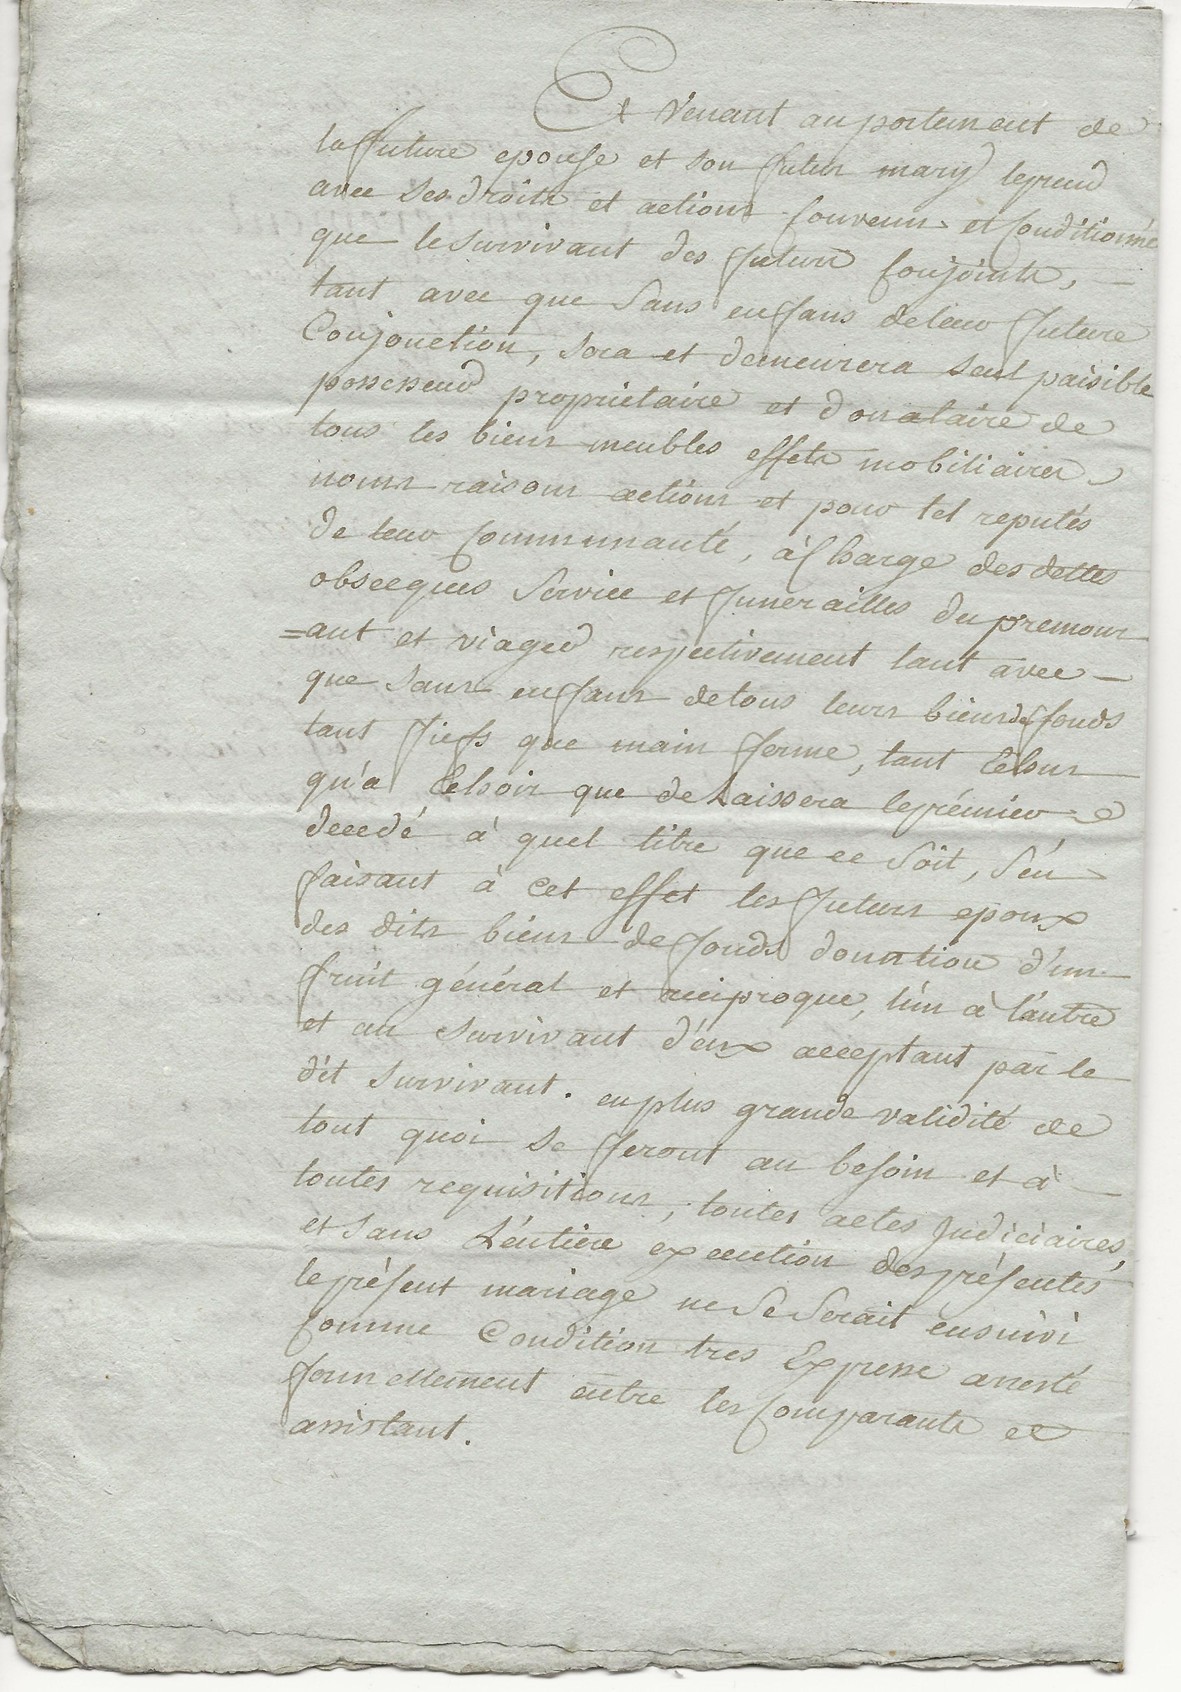 Et Venant au portement de
la future epouse et son futur mary le prend
avec ses droits et actions convenu et conditionné
que le survivant des futurs conjoints,
tant avec que sans enfans de leur future
Conjonction, sera et demeurera seul paisible
possesseur propriétaire et donataire de
tous les biens meubles effets mobiliaires
noms raisons actions et pour tel reputés
de leur communauté, à charge des dettes
obsecques Service et funerailles du premour
=ant et viager respectivement tant avec
que sans enfans de tous leurs biens de fonds
tant fiefs que main ferme, tant
qu'a que delaissera le prémier
decedé à quel titre que ce soit, s'en
faisant à cet effet les futurs epoux
des dits biens de fonds donation d'un
fruit général et réciproque, l'un à l'autre
et au survivant d'eux acceptant par le
dit survivant. en plus grande validité de
tout quoi se feront au besoin et à
toutes requisitions, toutes actes judiciaires,
et sans L'éntiere execution des présentes
le présent mariage ne Se Serait ensuivi
comme Condition tres Expresse arresté
formellement entre les comparants et
assistant.